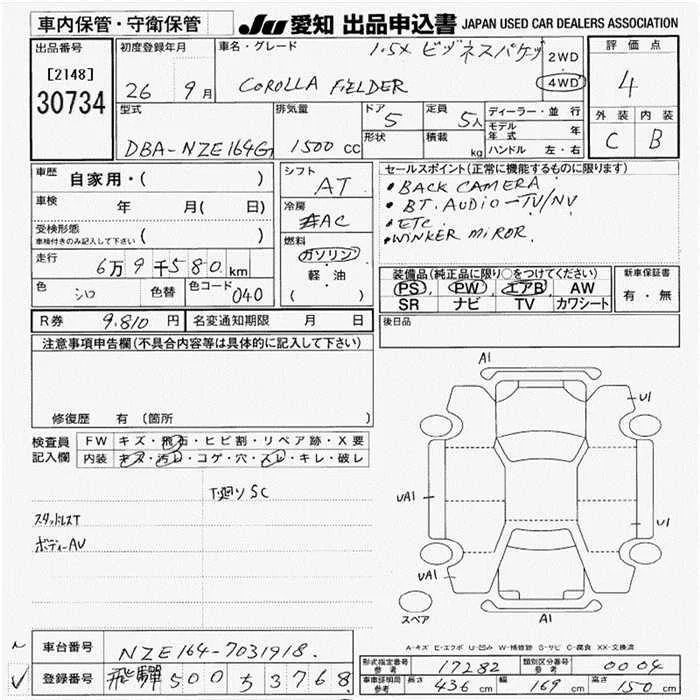 車内保管・守衛保管 JU 愛知 出品申込書 JAPAN USED CAR DEALERS ASSOCIATION
出品番号 初度登録年月 車名・グレード 1.5X ビジネスパケッ 2WD 評価点
[2148] 26 9月 COROLLA FIELDER 4WD 4
30734 型式 排気量 ドア 5 定員 5人 ディーラー・並行 外装 内装
DBA-NZE164G 1500 cc 形状 積載 kg モデル年式 年 C B
ハンドル 左・右
車歴 自家用・( ) シフト AT セールスポイント(正常に機能するものに限ります)
車検 年 月( 日) 冷房 AC ・BACK CAMERA
・BT. AUDIO-TV/NV
受検形態 ( ) ・ETC
車検付きのみ記入して下さい 燃料 ・WINKER MIROR.
走行 6万9千580km ガソリン 装備品(純正品に限り○をつけてください) 新車保証書
色 シロ 色替 色コード 040 軽・油 PS PW エアB AW 有・無
( ) SR ナビ TV カワシート
R券 9.810 円 名変通知期限 月 日 後日品
注意事項申告欄(不具合内容等は具体的に記入して下さい)
A1
U1
修復歴 有 (箇所 )
検査員 FW キズ・飛石・ヒビ割・リペア跡・X要
記入欄 内装 キズ・汚レ・コゲ・穴・スレ・キレ・破レ
T廻りSC
UA1
スタッドレスT U1
ボディーAV
UA1
スペア A1
A-キズ E-エクボ U-凹み W-補修跡 S-サビ C-腐食 XX-交換済
車台番号 NZE164-7031918.
登録番号 飛騨 500 ち 3768
型式指定番号 17282 類別区分番号 0004
車車証明局 参考 長さ 436 cm 幅 169 cm 高さ 150 cm